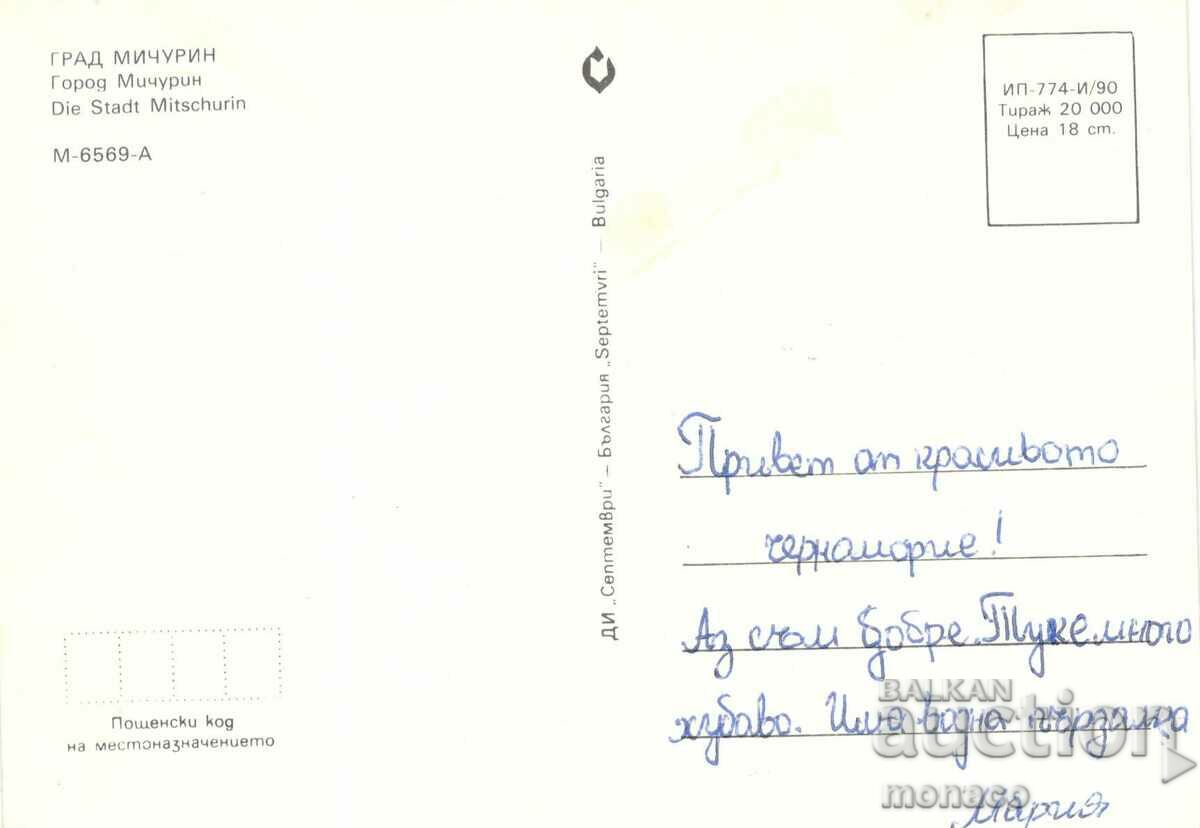 ГРАД МИЧУРИН
Город Мичурин
Die Stadt Mitschurin
М-6569-А
ДИ „Септември" – България „Septemvri" – Bulgaria
ИП-774-И/90
Тираж 20 000
Цена 18 ст.
Привет от красивото
черноморие!
Аз съм добре. Тук е много
хубаво. Има водна пързалка
Мария
Пощенски код
на местоназначението
BALKAN
auction
monaco